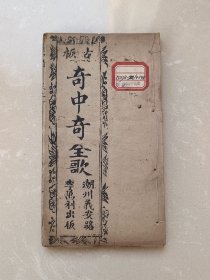 古板
奇中奇全歌
潮州義安路
李萬利出板